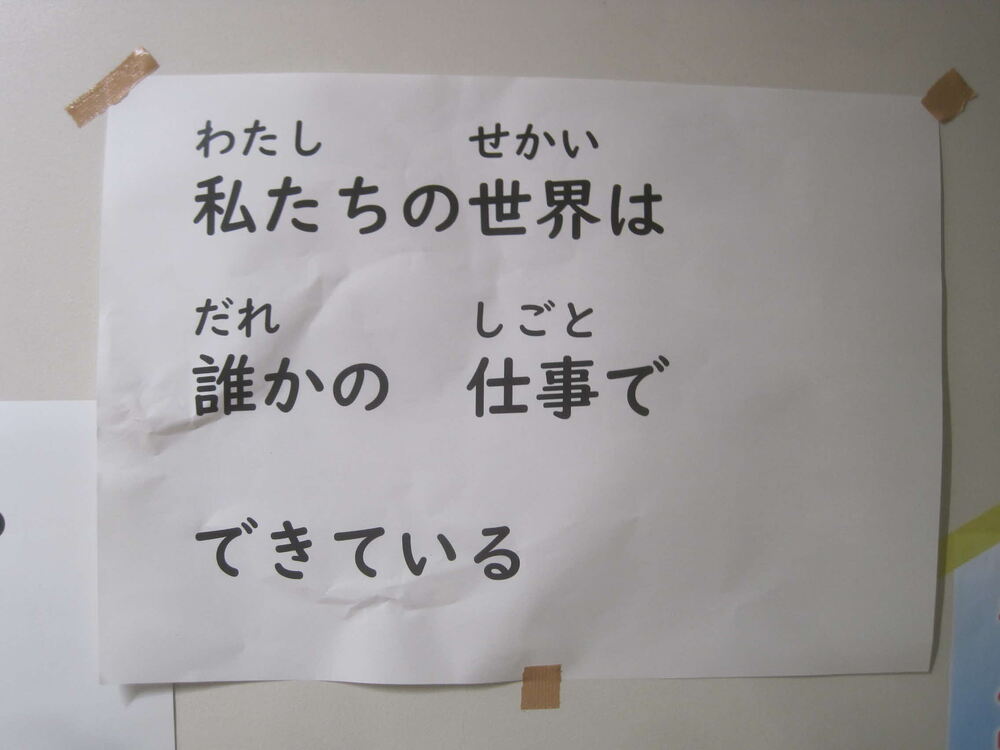 わたし せかい
私たちの世界は
だれ しごと
誰かの 仕事で
できている